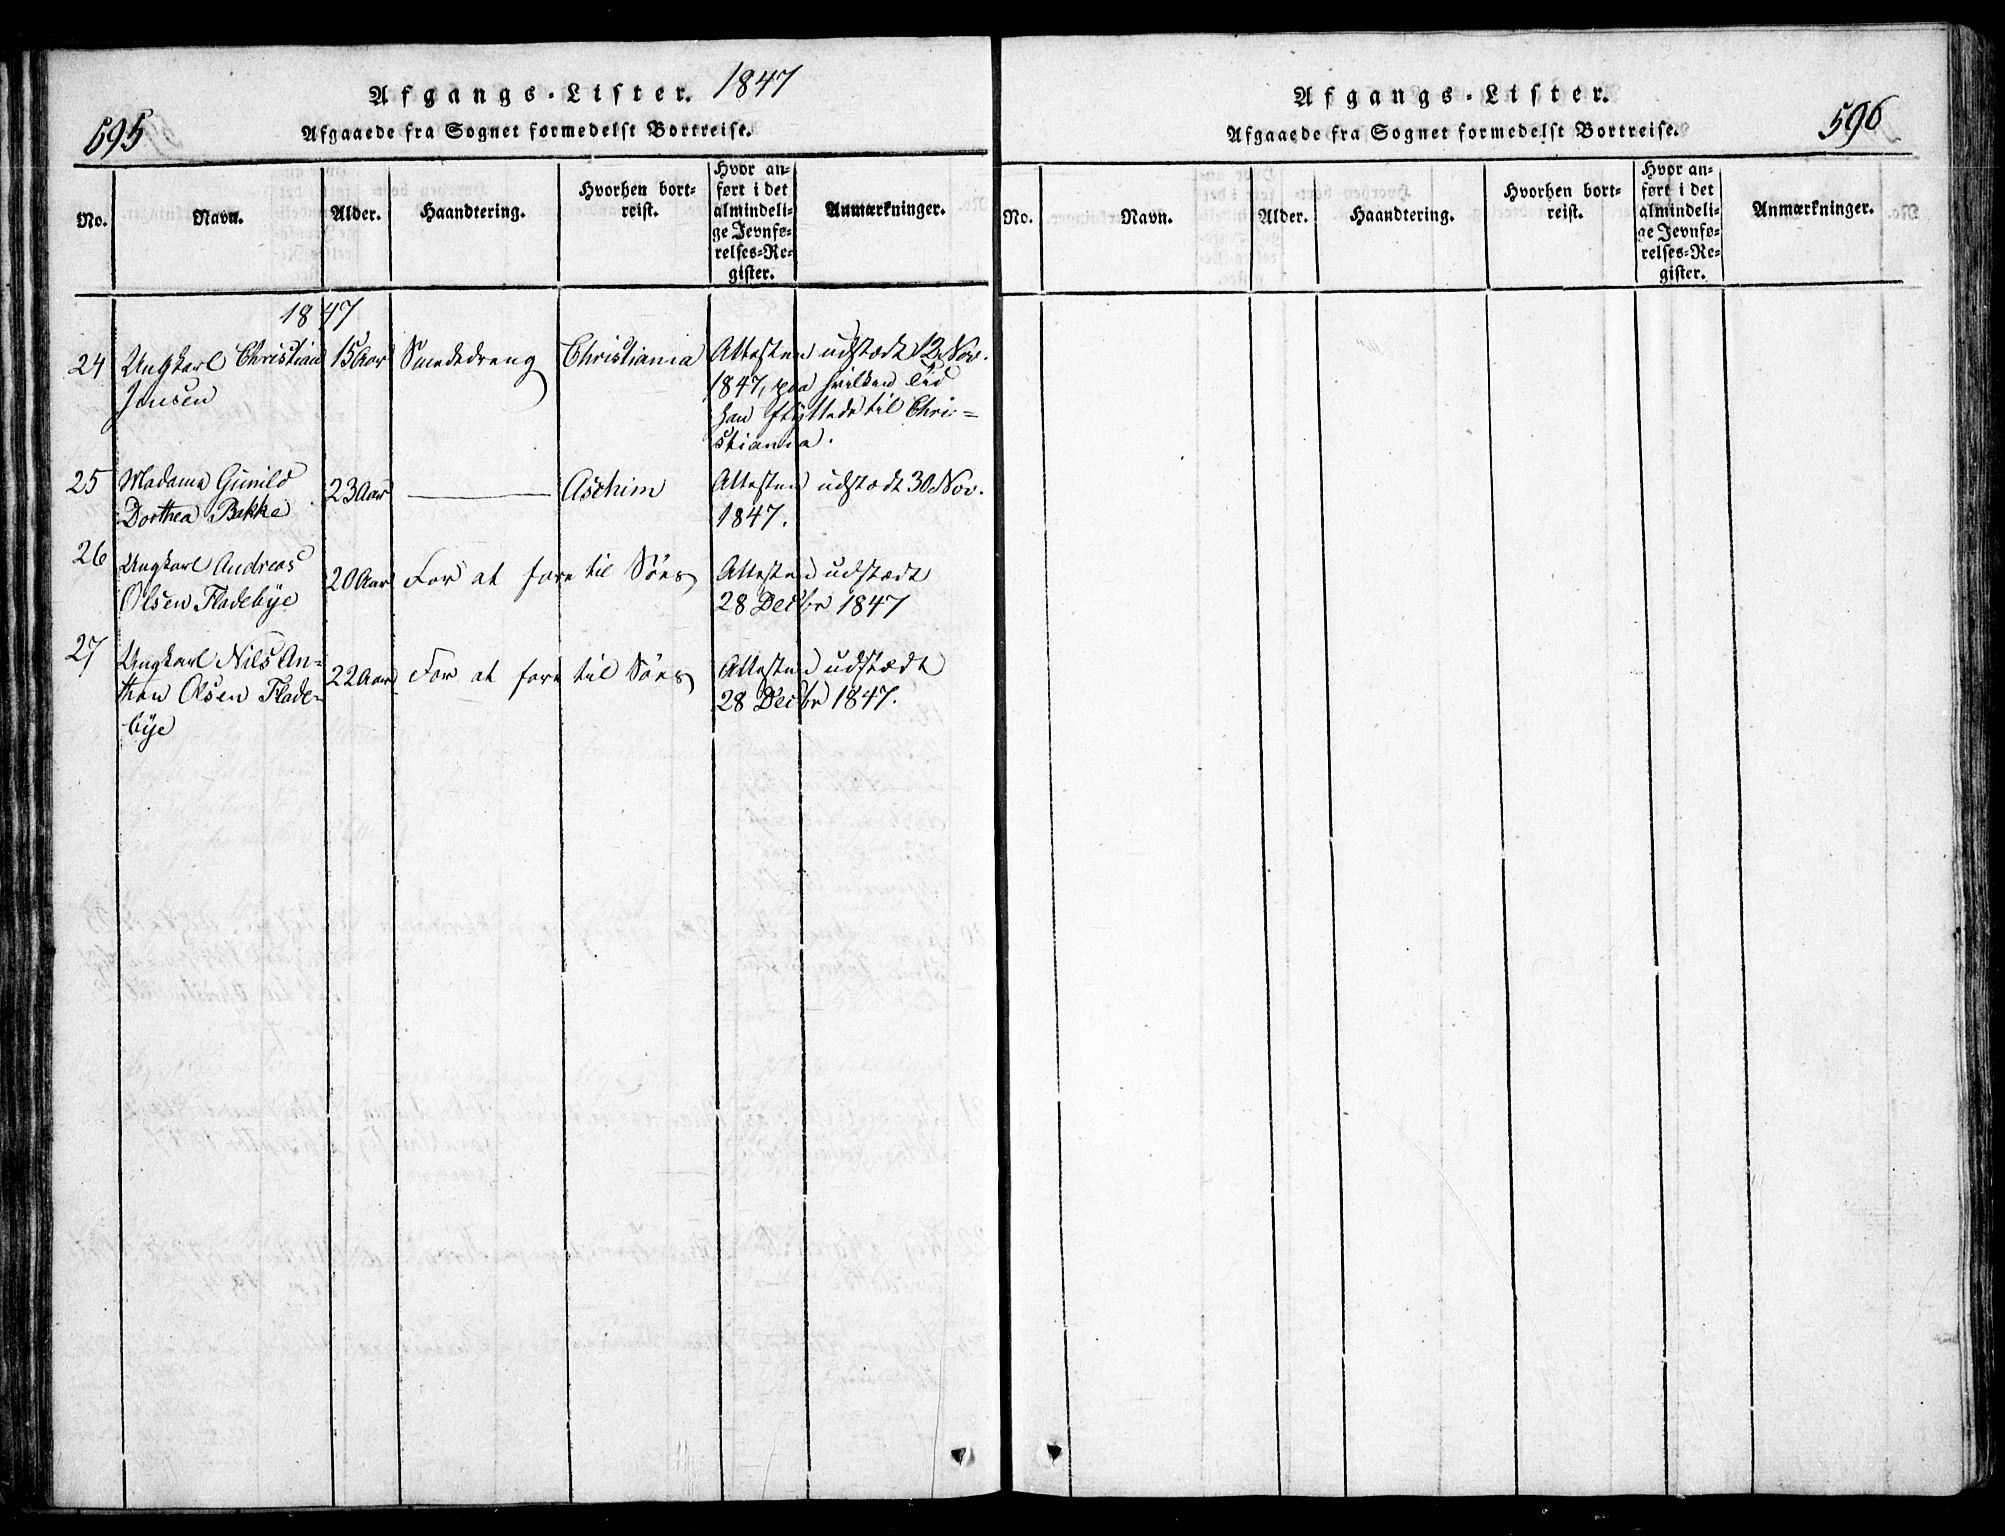 Afgangs-Lister. 1847
595
Afgaaede fra Sognet formedelst Bortreise.
No.
Navn.
Alder.
Haandtering.
Hvorhen bort-
reist.
Hvor an-
ført i det
almindeli-
ge Jevnfø-
relses-Re-
gister.
Anmærkninger.
1847
24
Ungkarl Christian
Jensen
15 Aar
Smededreng
Christiania
Attesten udstædt 12 Nov.
1847, paa hvilken Tid
han flÿttede til Chri=
stiania.
25
Madame Gunild
Dorthea Bakke
23 Aar
Aschim
Attesten udstædt 30 Nov.
1847.
26
Ungkarl Andreas
Olsen Fladebÿe
20 Aar
For at fare til Söes
Attesten udstædt
28 Decbr 1847
27
Ungkarl Nils An=
thon Olsen Flade=
bÿe
22 Aar
For at fare til Söes
Attesten udstædt
28 Decbr 1847.
Afgangs-Lister.
596
Afgaaede fra Sognet formedelst Bortreise.
No.
Navn.
Alder.
Haandtering.
Hvorhen bort-
reist.
Hvor an-
ført i det
almindeli-
ge Jevnfø-
relses-Re-
gister.
Anmærkninger.